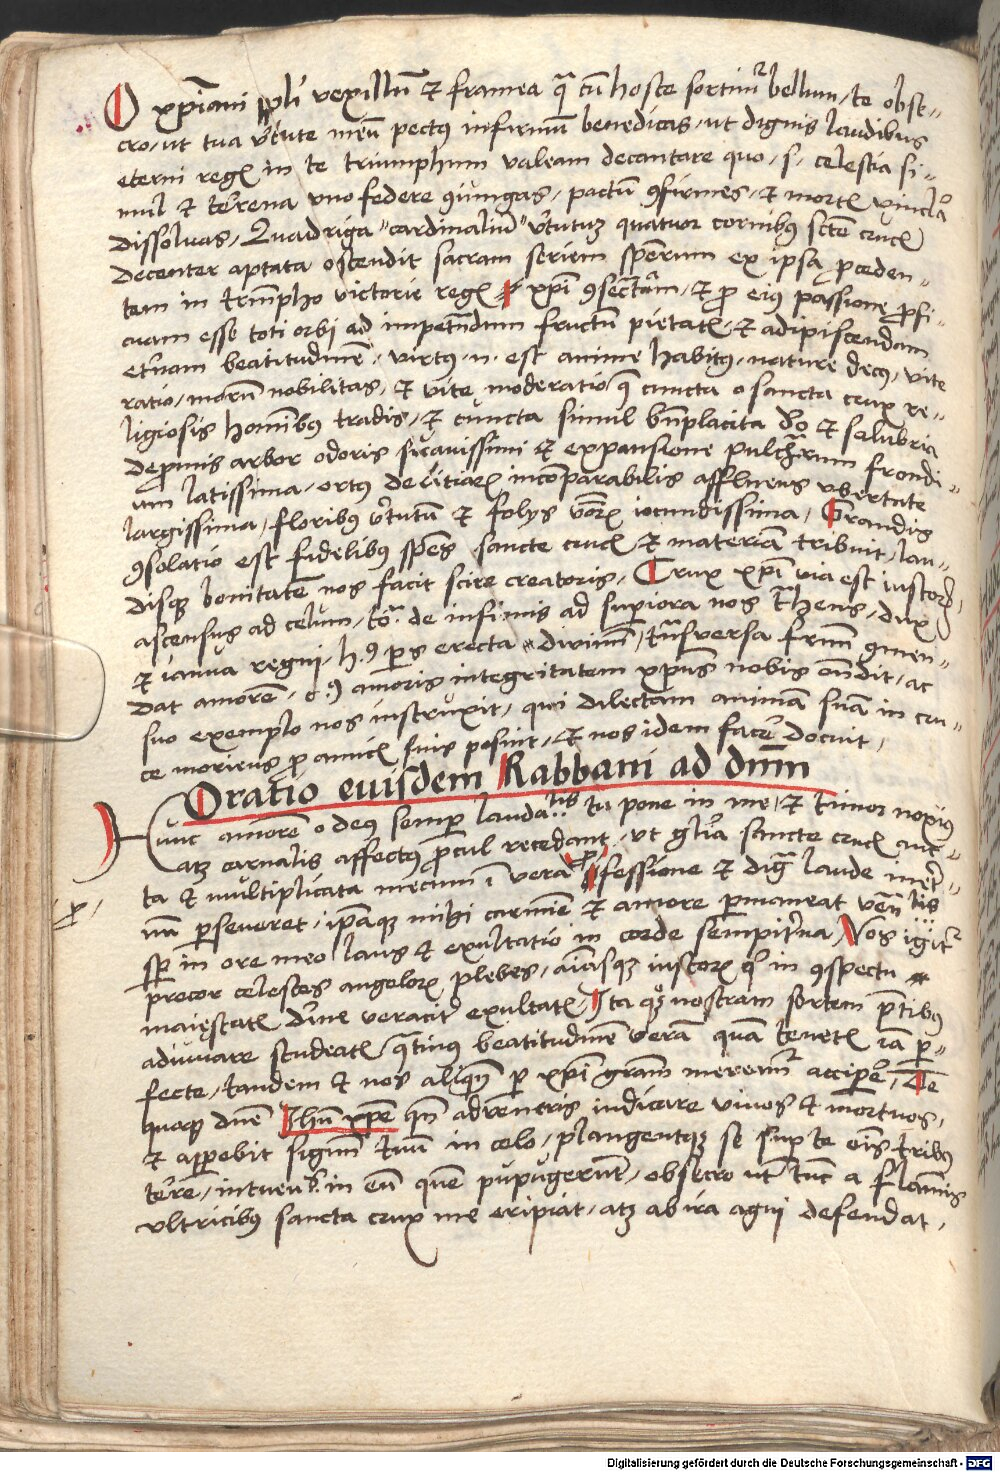 O xp̄iani pp̄li vexillū et framea q̄ cū hoste sortimur bellum / te obse-
cro / ut tua virtute meū pectus infirmū benedicas / ut dignis laudibus
eterni regis in te triumphum valeam decantare quo / s / celestia si-
mul et terrena uno federe ꝯiungas / pactū ꝯfirmes / et mortis vincla
dissoluas / Quadriga cardinaliū virtutum quatuor cornibus scte crucis
decenter aptata ostendit sacram seriem spērum ex ipsa proceden-
tem in triumpho victorie regis xpi ꝯsecratam / et pro eius passione profi-
cuam esse toti orbi ad impetrandum fructū pietatis / et adipiscendam
eternam beatitudinē / virtus .n. est anime habitus / nature decus / vite
ratio / morū nobilitas / et vite moderatio que cuncta o sancta crux re-
ligiosis hominibus tradis / et cuncta simul bn̄placita deo et salubria
depromis arbor odoris suavissimi et expansione pulchrarum frondi-
um latissima / ortus delitiarum incomparabilis affluens ubertate
largissima / floribus virtutū et folys iocundissima / Grandis
ꝯsolatio est fidelibus spes sancte crucis et materiā tribuit / lau-
disque bonitatē nos facit scire creatoris / Crux xpi via est iustorum /
ascensus ad celum / de infimis ad superiora nos trahens / dux
et ianua regni / h.ꝯ pars erecta divinū / transversa frnm ꝯmen-
dat amorē / amoris integritatem xpus nobis ondit / ac
suo exemplo nos instruxit / qui dilectam animā suā in cru-
ce moriens pro amicis suis posuit / et nos idem facere docuit /
Oratio euisdem Rabbani ad dnm
Nunc amorē o deus semper laudabilis tu pone in me / et timor noxius
atque carnalis affectus procul recedant / ut gloria sancte crucis auc-
ta et multiplicata mecum ī vera ꝯfessione et digna laude
perseveret / ipsaque mihi carmine et amore permaneat
semper in ore meo laus et exultatio in corde sempiterna / Vos igitur
precor celestes angelorum plebes / animasque iustorum qui in ꝯspectu
maiestatis divine veraciter exultatis / Ita quoque nostram sortem precibus
adiuvare studeatis / quatinus beatitudinē verā quā tenetis iā per-
fecte / tandem et nos aliquando per xpi gratiam mereamur accipere / Te
quoque dn̄e Ihū xp̄e qn̄ adveneris iudicare vivos et mortuos /
et apparebit signum tuū in celo / plangentque se super te oms tribus
terre / intuentes in eū quē pupugerunt / obsecro ut tūc a flammis
ultricibus sancta crux me eripiat / atque ab ira agni defendat /
Digitalisierung gefördert durch die Deutsche Forschungsgemeinschaft - DFG